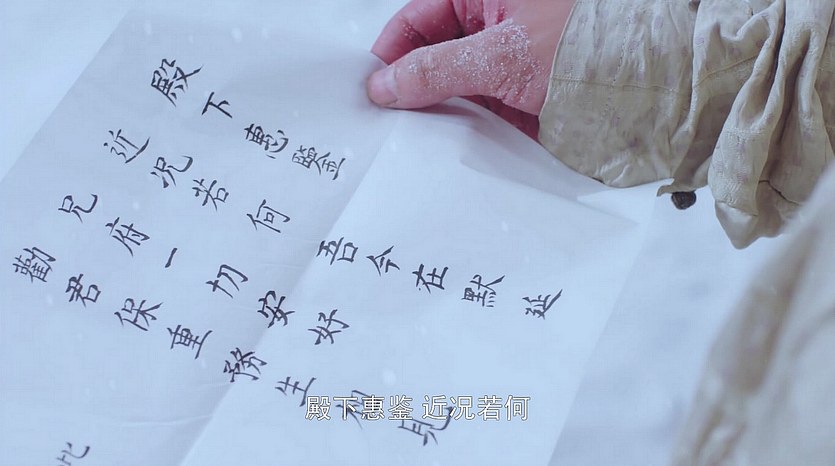 殿下惠鑒
近況若何 吾今在默延
兄府一切安好
勸君保重務生見
殿下惠鉴 近况若何